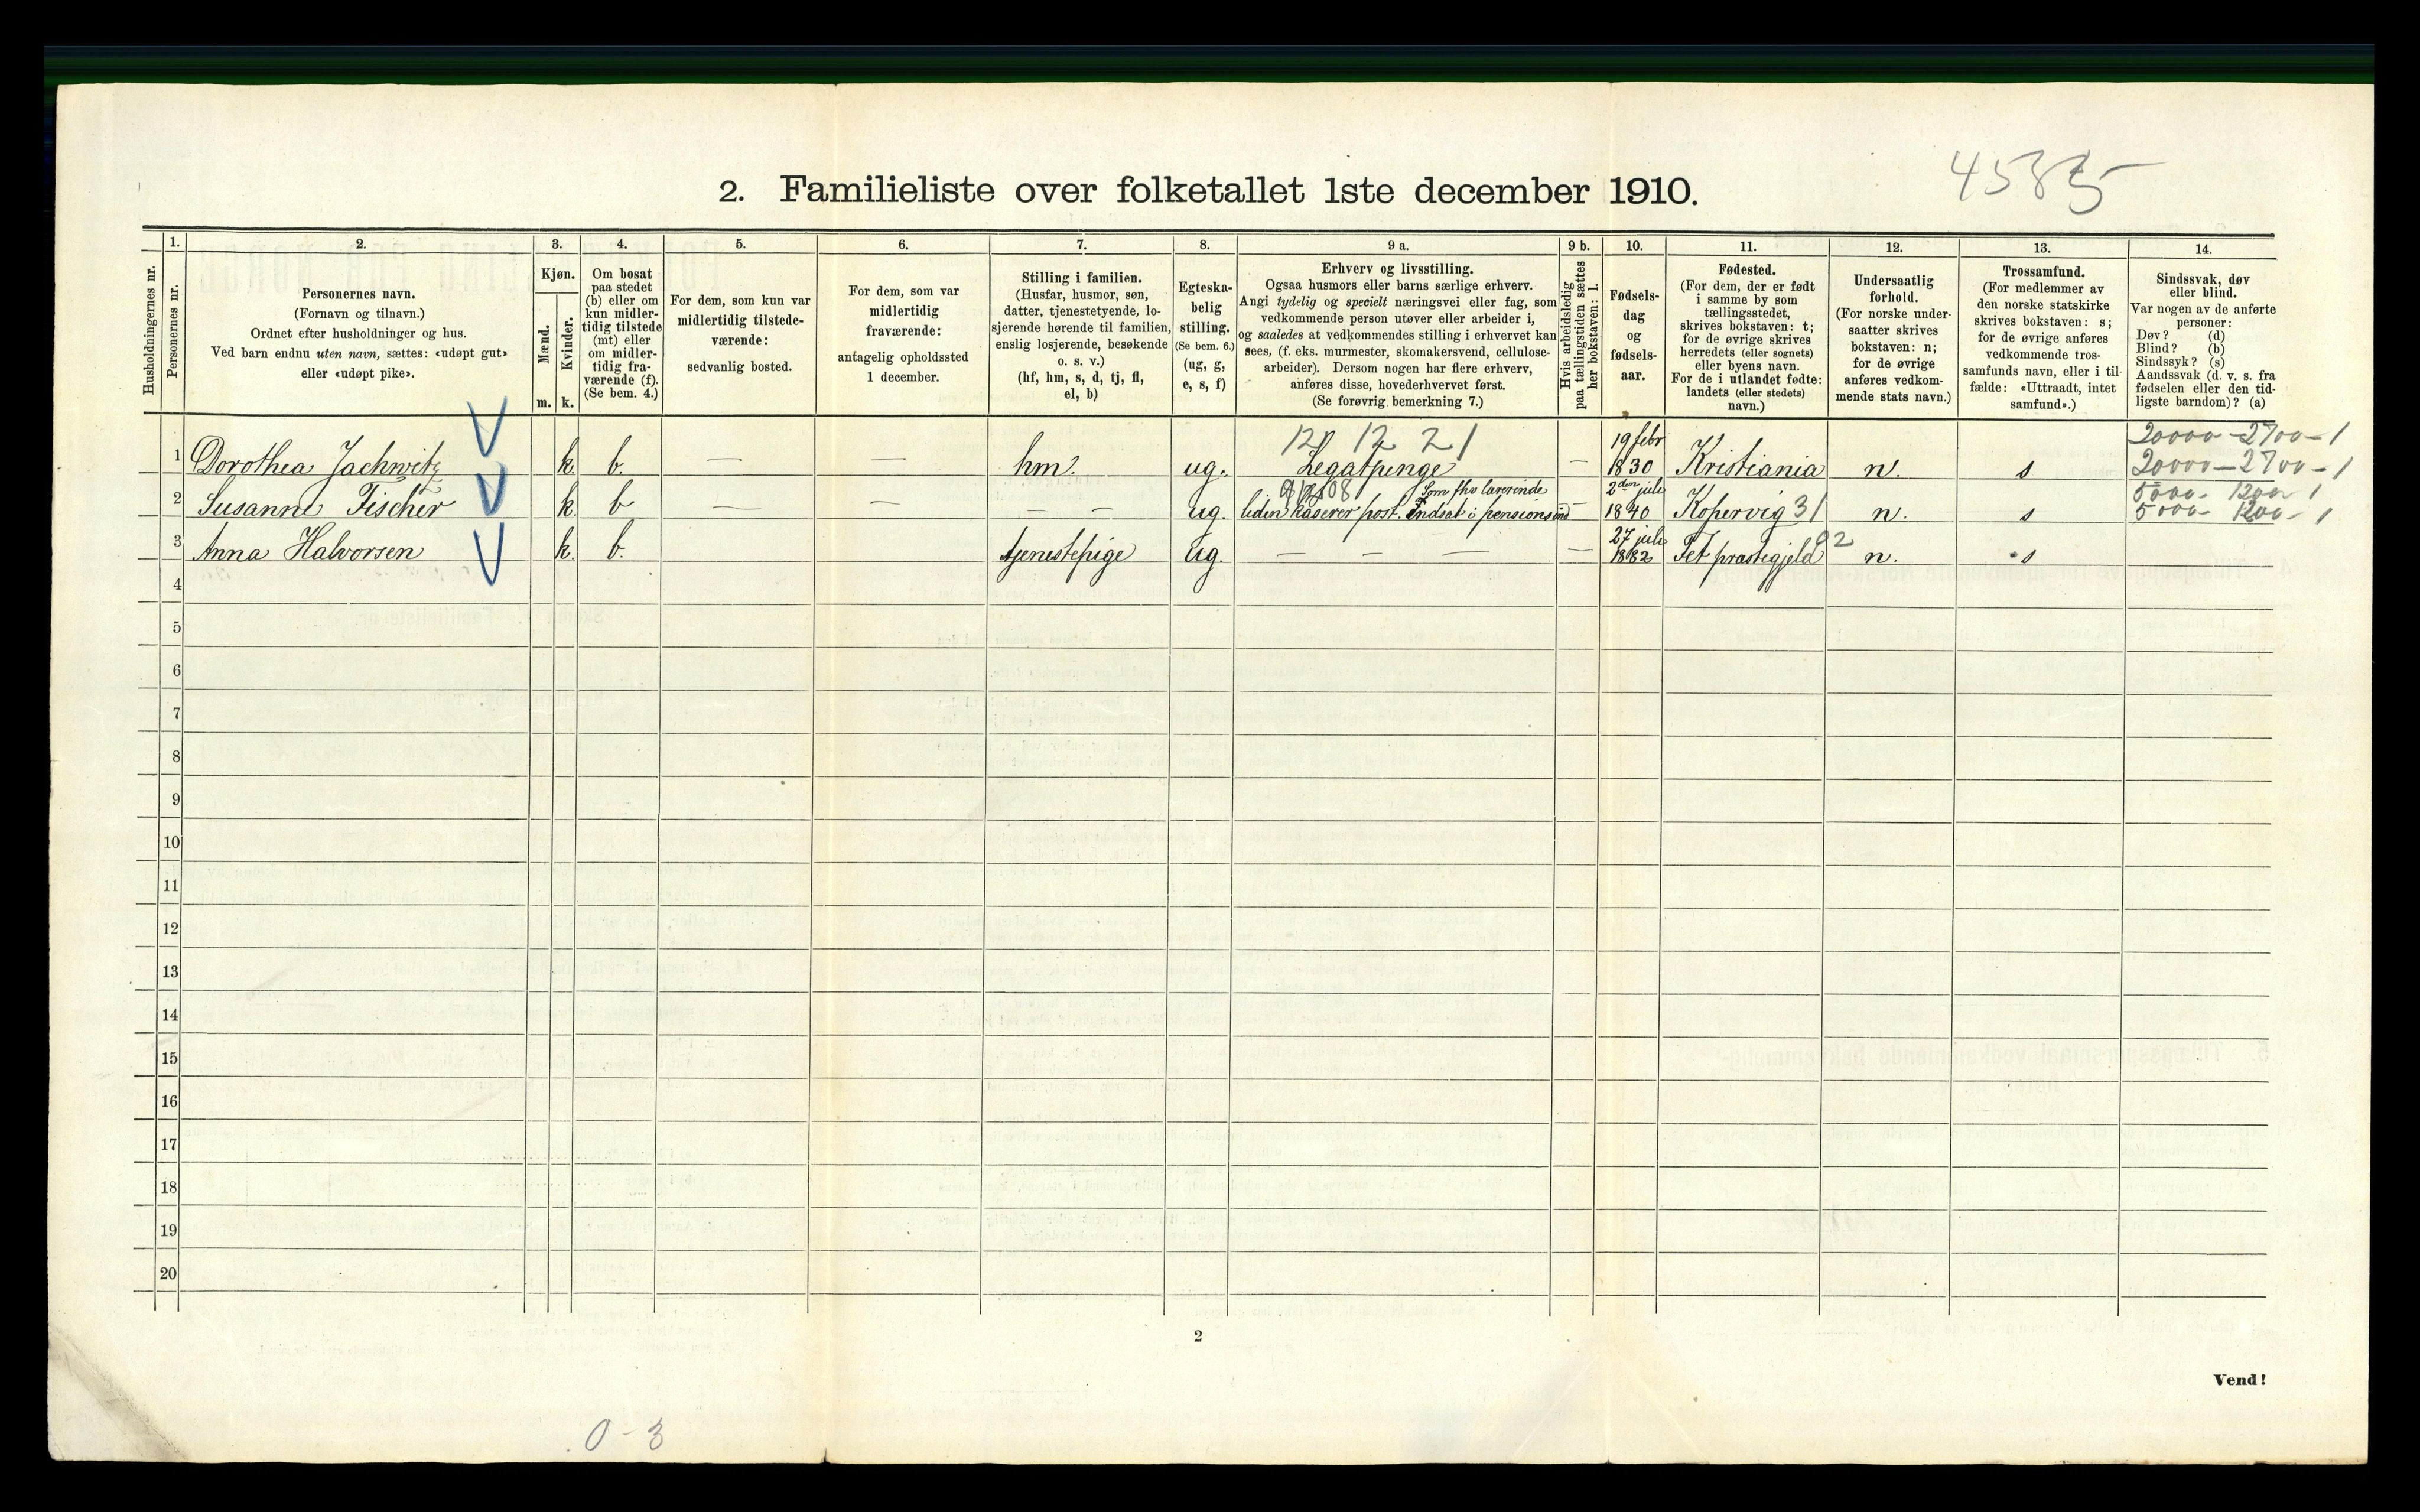 4583 5
2. Familieliste over folketallet 1ste december 1910.
Husholdningernes nr.
1. Personernes nr.
2. Personernes navn. (Fornavn og tilnavn.) Ordnet efter husholdninger og hus. Ved barn endnu uten navn, sættes: «udøpt gut» eller «udøpt pike».
3. Kjøn. Mænd. m. Kvinder. k.
4. Om bosat paa stedet (b) eller om kun midler-tidig tilstede (mt) eller om midler-tidig fra-værende (f). (Se bem. 4.)
5. For dem, som kun var midlertidig tilstede-værende: sedvanlig bosted.
6. For dem, som var midlertidig fraværende: antagelig opholdssted 1 december.
7. Stilling i familien. (Husfar, husmor, søn, datter, tjenestetyende, lo-sjerende hørende til familien, enslig losjerende, besøkende o. s. v.) (hf, hm, s, d, tj, fl, el, b)
8. Egteska-belig stilling. (Se bem. 6.) (ug, g, e, s, f)
9 a. Erhverv og livsstilling. Ogsaa husmors eller barns særlige erhverv. Angi tydelig og specielt næringsvei eller fag, som vedkommende person utøver eller arbeider i, og saaledes at vedkommendes stilling i erhvervet kan sees, (f. eks. murmester, skomakersvend, cellulose-arbeider). Dersom nogen har flere erhverv, anføres disse, hovederhvervet først. (Se forøvrig bemerkning 7.)
9 b. Hvis arbeidsledig paa tællingstiden sættes her bokstaven: l.
10. Fødsels-dag og fødsels-aar.
11. Fødested. (For dem, der er født i samme by som tællingsstedet, skrives bokstaven: t; for de øvrige skrives herredets (eller sognets) eller byens navn. For de i utlandet fødte: landets (eller stedets) navn.)
12. Undersaatlig forhold. (For norske under-saatter skrives bokstaven: n; for de øvrige anføres vedkom-mende stats navn.)
13. Trossamfund. (For medlemmer av den norske statskirke skrives bokstaven: s; for de øvrige anføres vedkommende tros-samfunds navn, eller i til-fælde: «Uttraadt, intet samfund».)
14. Sindssvak, døv eller blind. Var nogen av de anførte personer: Døv? (d) Blind? (b) Sindssyk? (s) Aandssvak (d. v. s. fra fødselen eller den tid-ligste barndom)? (a)
12 12 21 20000 - 2700 - 1
1 Dorothea Jachwitz k. b. — — hm. ug. Legatpenge — 19 febr 1830 Kristiania n. s 20000 - 2700 - 1
5000 - 1200 - 1
2 Susanne Fischer k. b — — — — ug. liden Som fhv lærerinde Indsat i pensions — 2den juli 1840 Kopervig 31 n. s 5000 - 1200 - 1
3 Anna Halvorsen k. b. tjenestepige ug. — — — — 27 juli 1882 Fet præstegjeld 02 n. s
4
5
6
7
8
9
10
11
12
13
14
15
16
17
18
19
20
2
Vend!
0-3